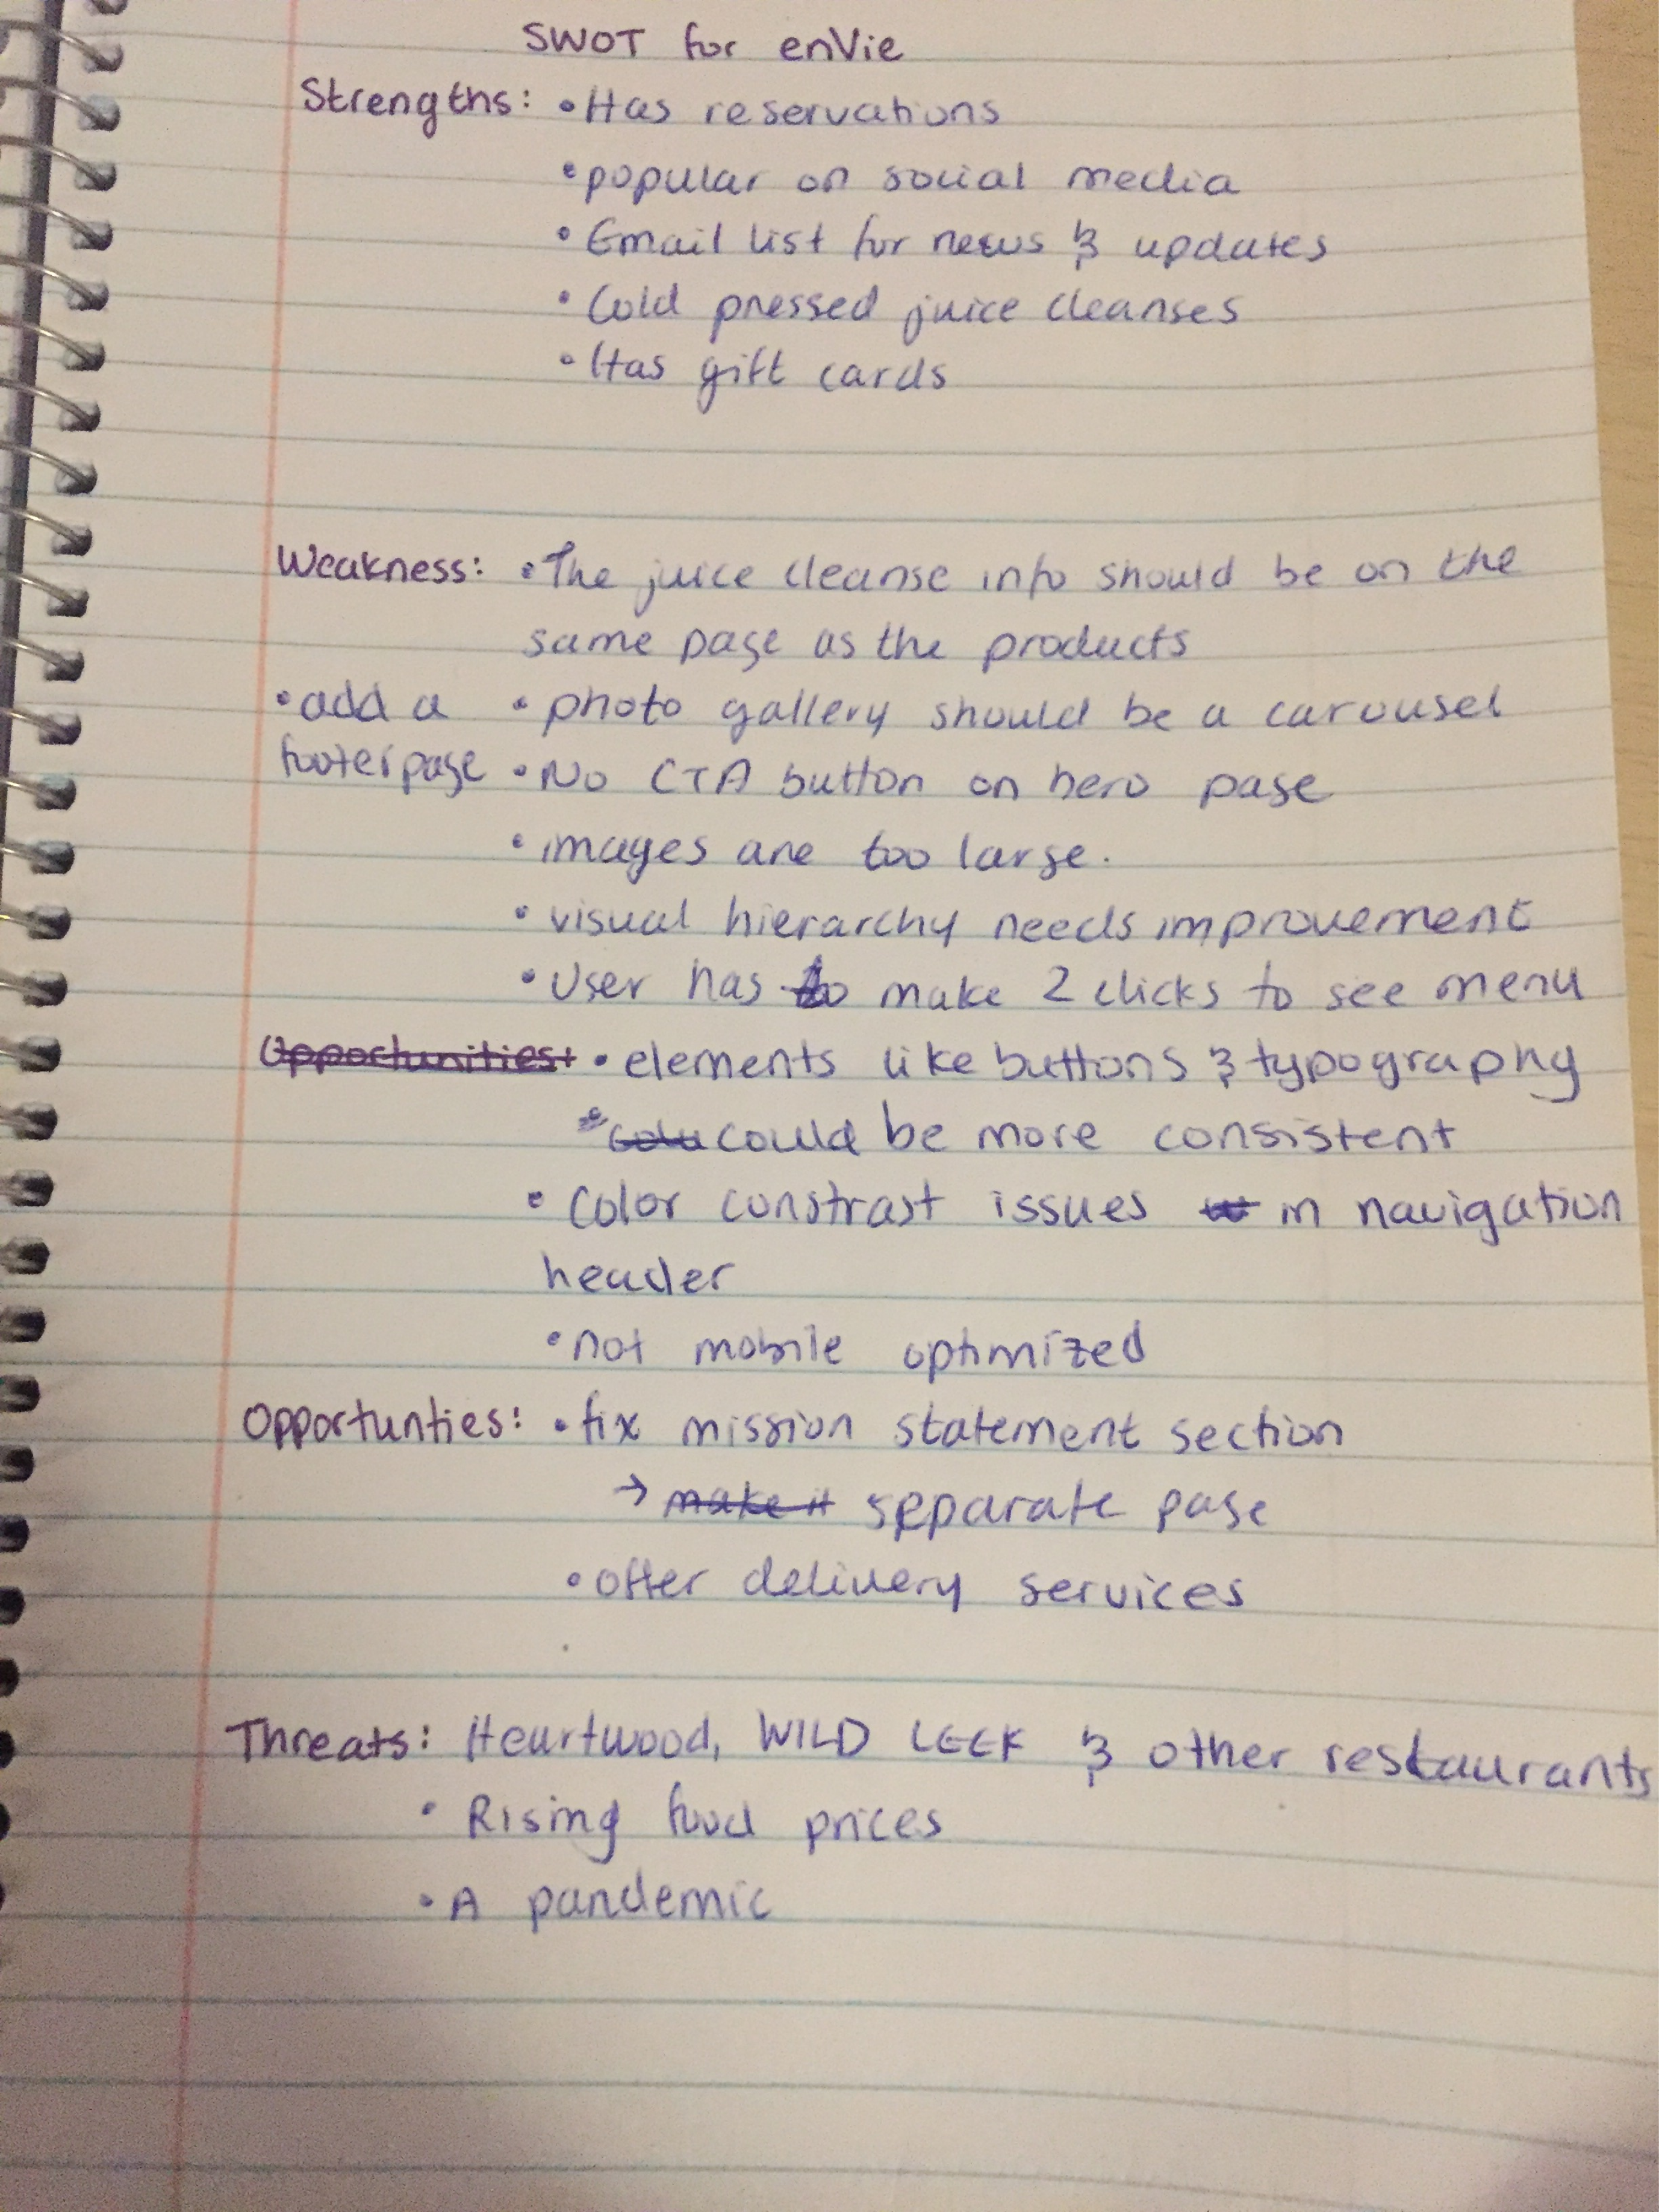 SWOT for enVie
Strengths: • Has reservations
• popular on social media
• Email list for news & updates
• Cold pressed juice cleanses
• Has gift cards
Weakness: • The juice cleanse info should be on the
same page as the products
• add a • photo gallery should be a carousel
footer page • No CTA button on hero page
• images are too large.
• visual hierarchy needs improvement
• User has to make 2 clicks to see menu
Opportunities: • elements like buttons & typography
could be more consistent
• Color constrast issues in navigation
header
• not mobile optimized
Opportunties: • fix mission statement section
→ make it separate page
• offer delivery services
Threats: Heartwood, WILD LEEK & other restaurants
• Rising food prices
• A pandemic